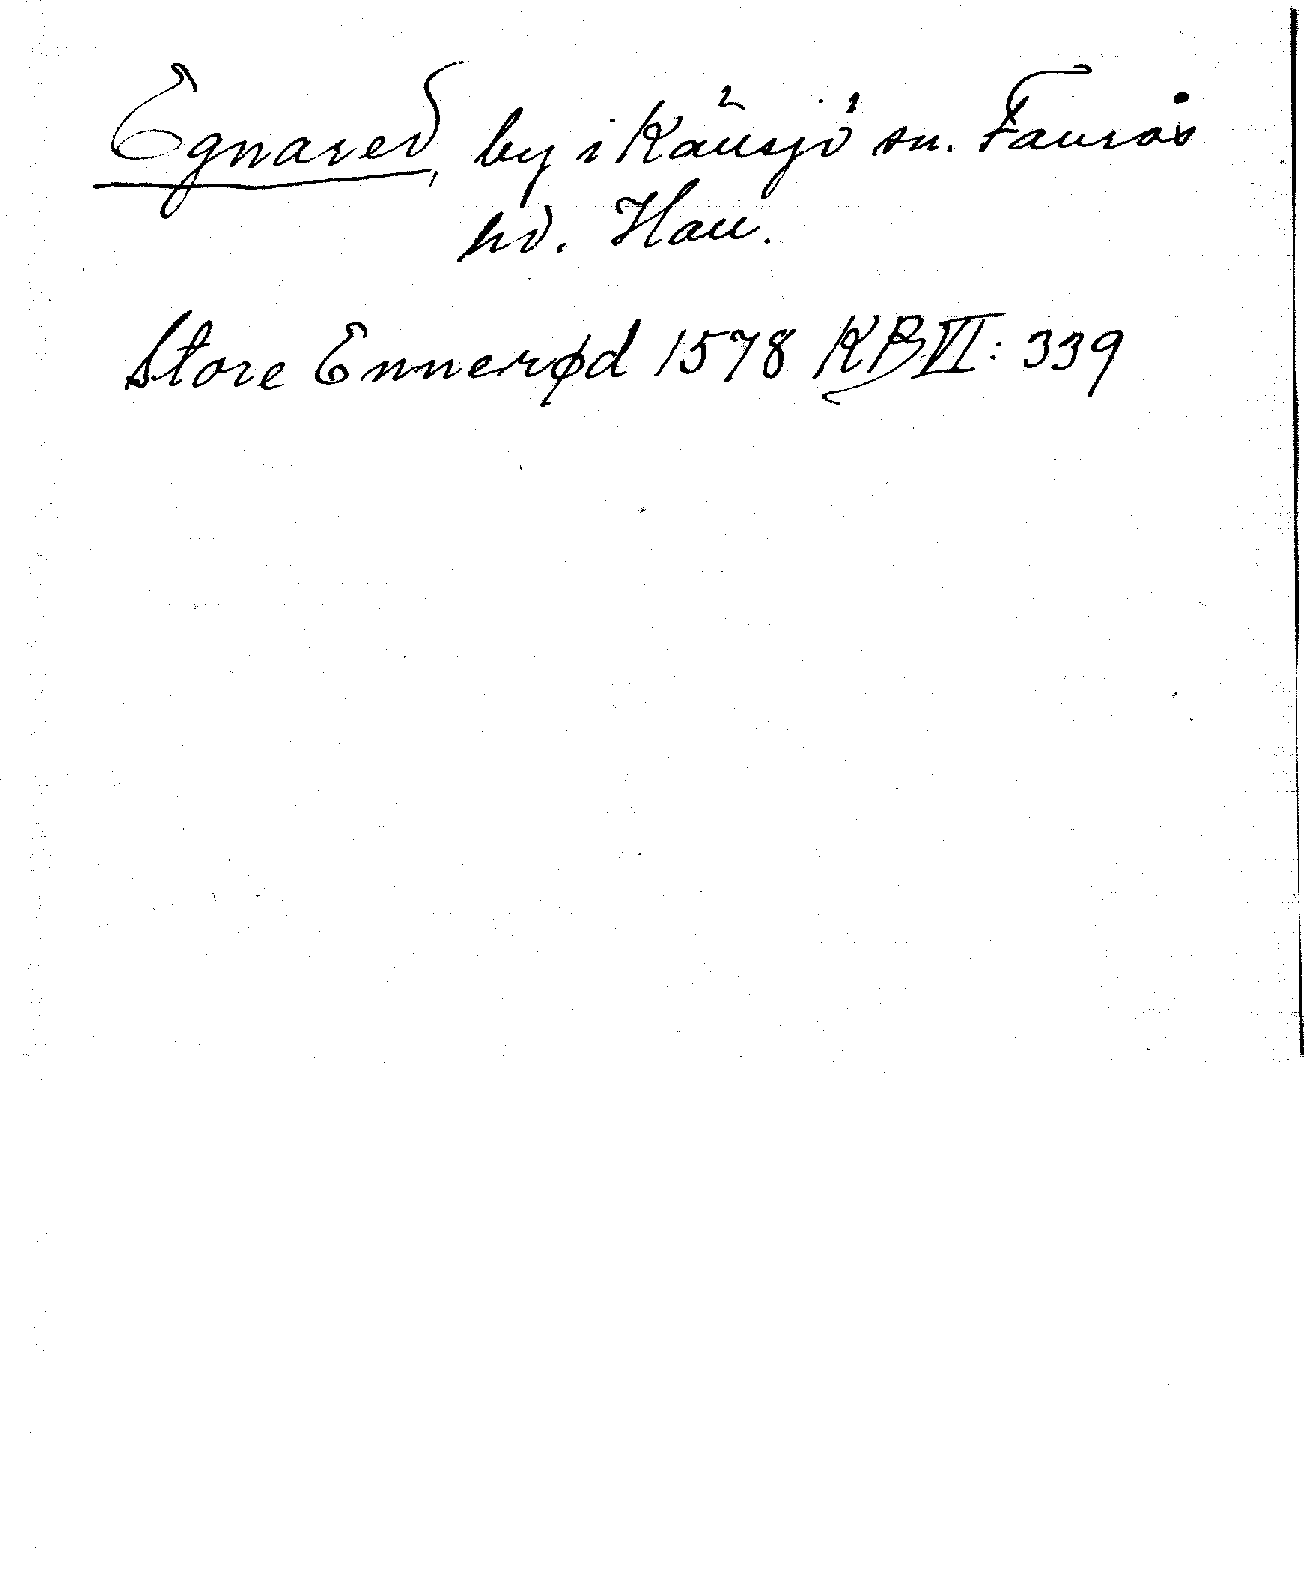 Egnared, by i Källsjö sn. Faurås
hd. Hall.
Store Ennerød 1578 KB VI: 339